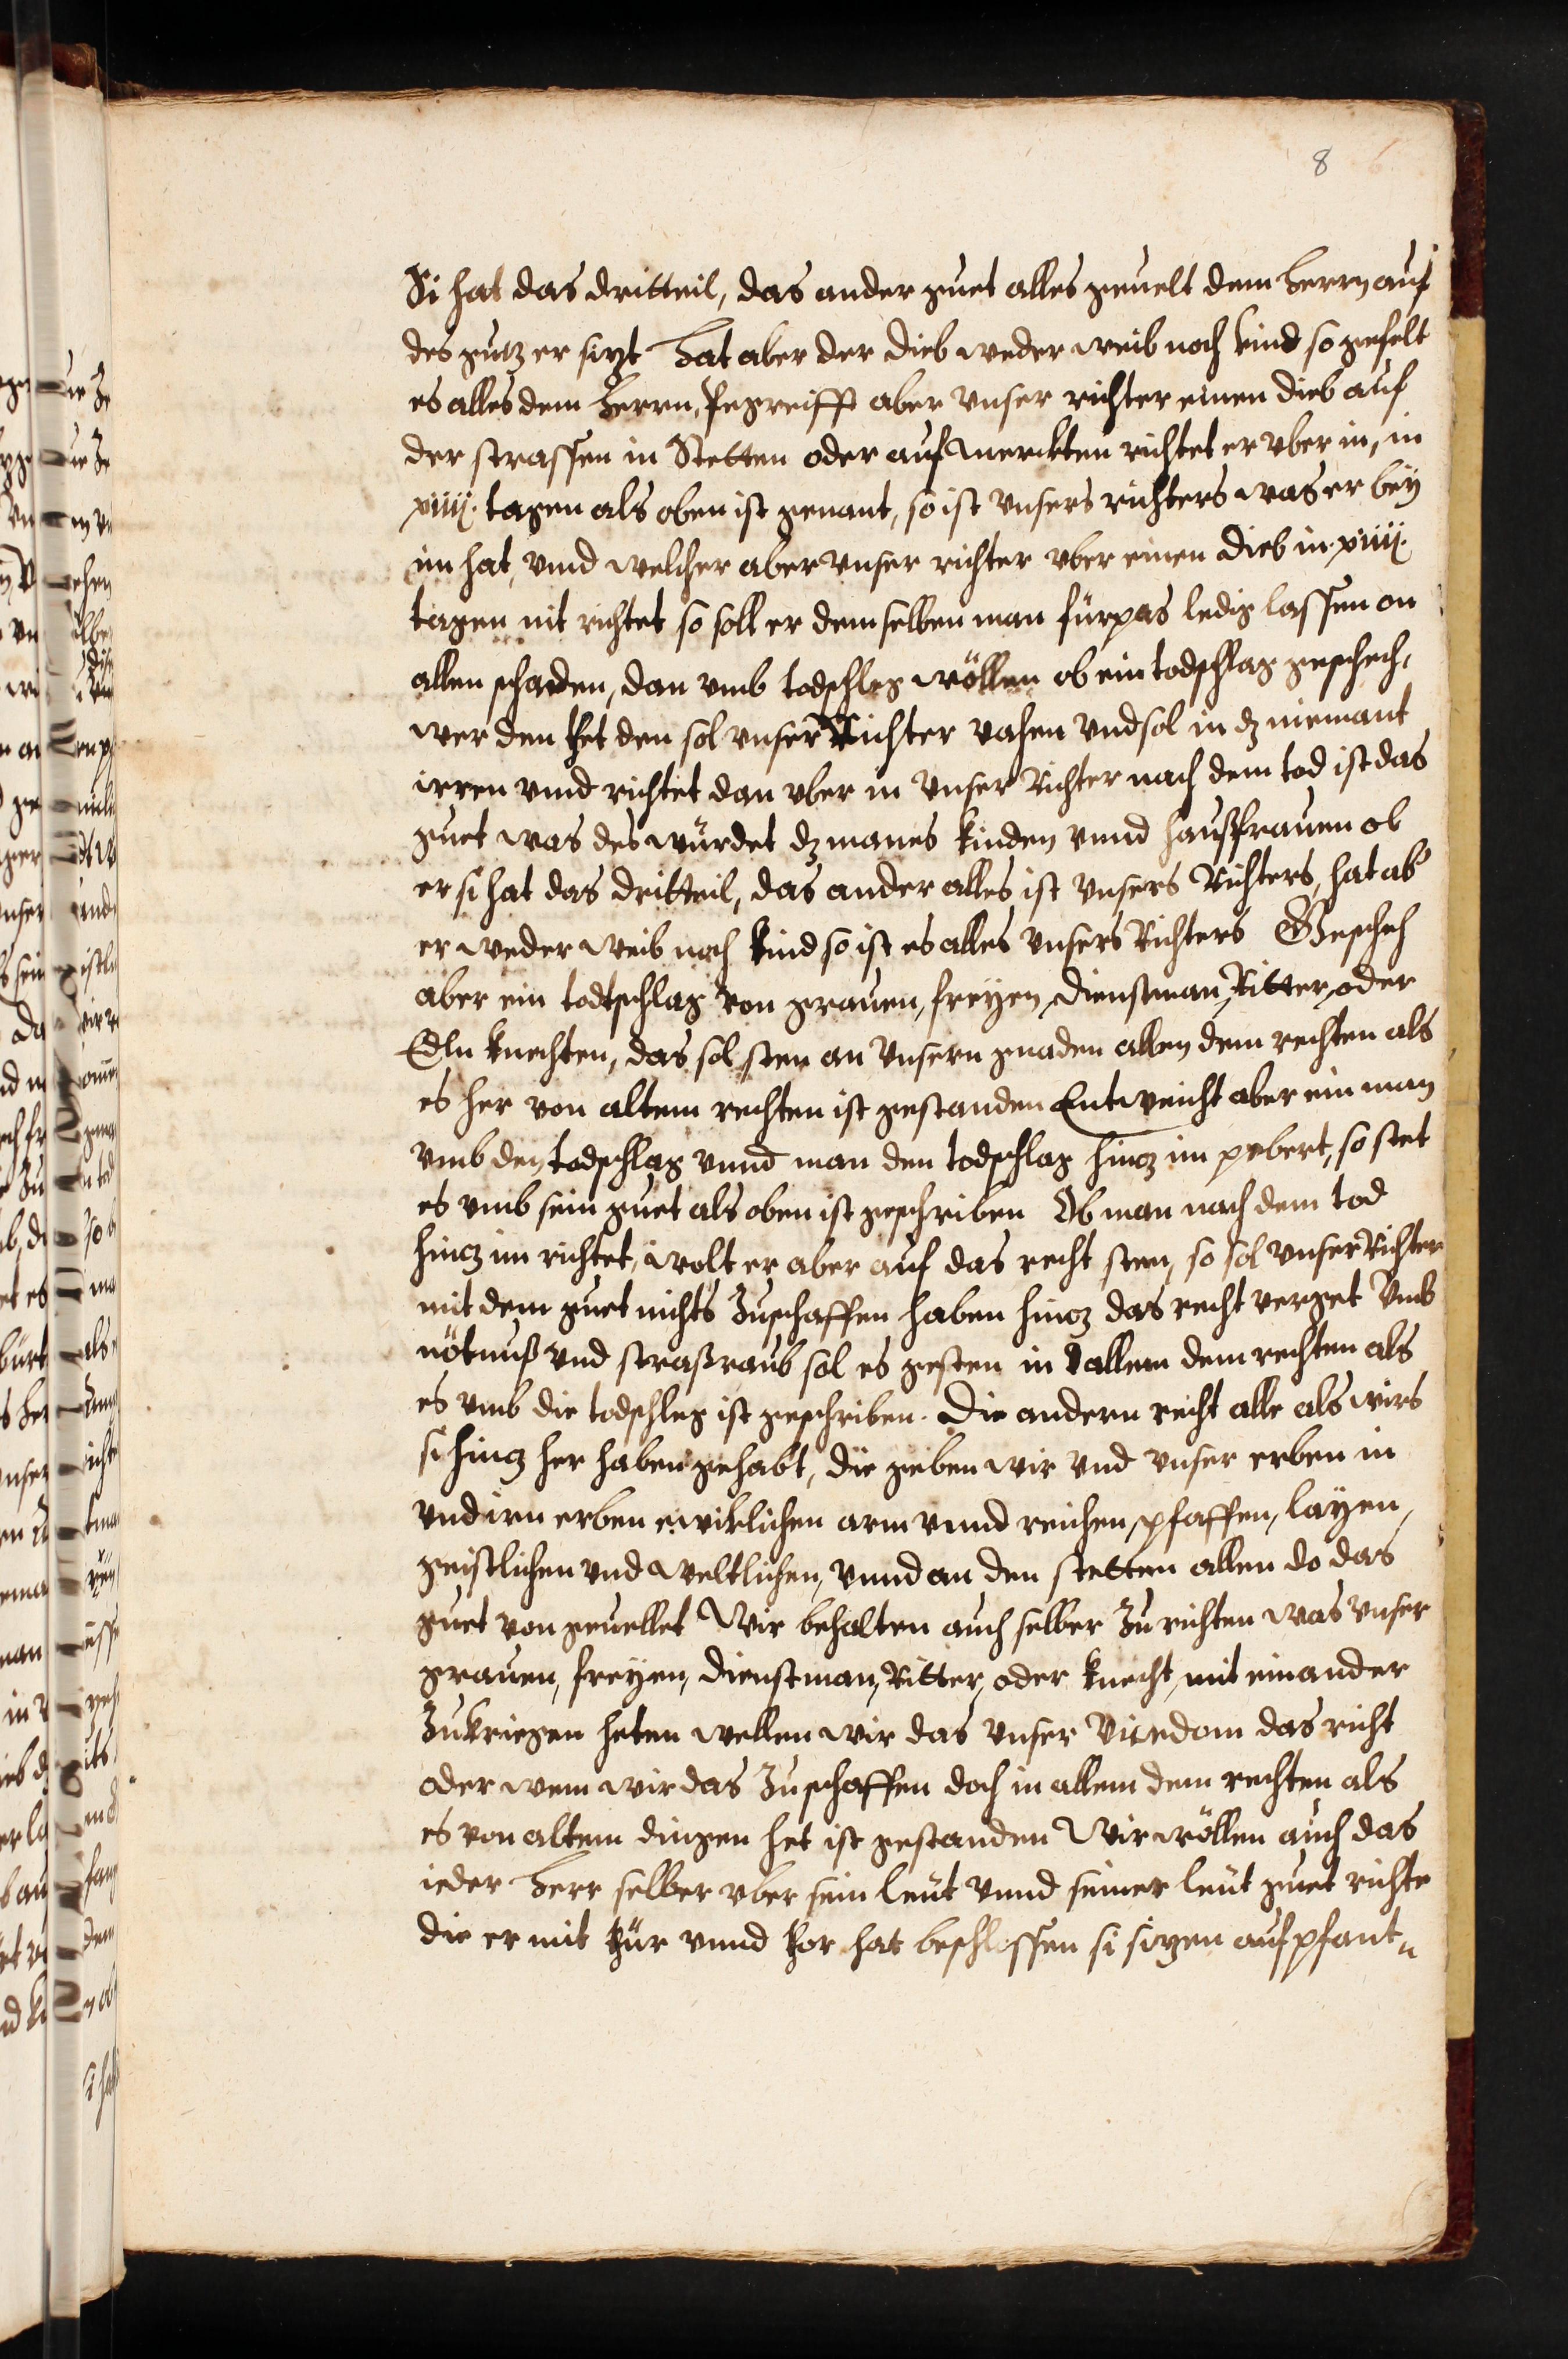 8
Si hat das dritteil, das ander guet alles geuelt dem herrn auf
des gutz er sizt Hat aber der dieb weder weib noch kind so gefelt
es alles dem herrn, Pegreifft aber vnser richter einen dieb auf
der strassen in Stetten oder auf merckten richtet er vber in, in
xiiij. tagen als oben ist genant, so ist vnsers richters was er bey
im hat, vnnd welcher aber vnser richter vber einen dieb in xiiij.
tagen nit richtet so soll er demselben man fürpas ledig lassen on
allen schaden, dan vmb todschleg wöllen ob ein todschlag geschech,
wer den thet den sol vnser Richter vahen vnd sol in dz niemant
irren vnnd richtet dan vber in vnser Richter nach dem tod ist das
guet was des würdet dz manes kinden vnnd haußfrauen ob
er si hat das dritteil, das ander alles ist vnsers Richters, hat ab
er weder weib noch kind so ist es alles vnsers Richters Geschech
aber ein todtschlag von grauen, freyen dienstman, Ritter, oder
Edln knechten, das sol sten an vnsern gnaden allen dem rechten als
es her von altem rechten ist gestanden Entweicht aber ein man
vmb den todschlag vnnd man den todschlag hincz im pebert, so stet
es vmb sein guet als oben ist geschriben Ob man nach dem tod
hincz im richtet, wolt er aber auf das recht sten, so sol vnser Richter
mit dem guet nichts zuschaffen haben hincz das recht verget Vmb
nötnuß vnd straßraub sol es gesten in allem dem rechten als
es vmb die todschleg ist geschriben. Die andern recht alle als wirs
si hincz her haben gehabt, die geben wir vnd vnser erben in
vnd irn erben ewiklichen arm vnnd reichen, pfaffen, layen,
geistlichen vnd weltlichen, vnnd an den stetten allen do das
guet von geuellet Wir behalten auch selber zu richten was vnser
grauen, freyen, dienstman, Ritter, oder knecht, mit einander
zukriegen heten wellen wir das vnser Vicedom das richt
oder wem wir das zuschaffen doch in allem dem rechten als
es von altem dingen het ist gestanden Wir wöllen auch das
ieder herr selber vber sein leut vnnd seiner leut guet richte
die er mit thür vnnd thor hat beschlossen si sizen auf pfant